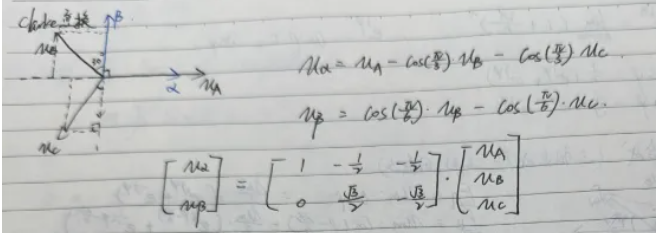 Clarke变换
β
u_B
30°
α
u_A
u_C
u_α = u_A - cos(π/3) u_B - cos(π/3) u_C.
u_β = cos(π/6)·u_B - cos(π/6)·u_C.
[u_α; u_β] = [1 -1/2 -1/2; 0 √3/2 -√3/2]·[u_A; u_B; u_C]